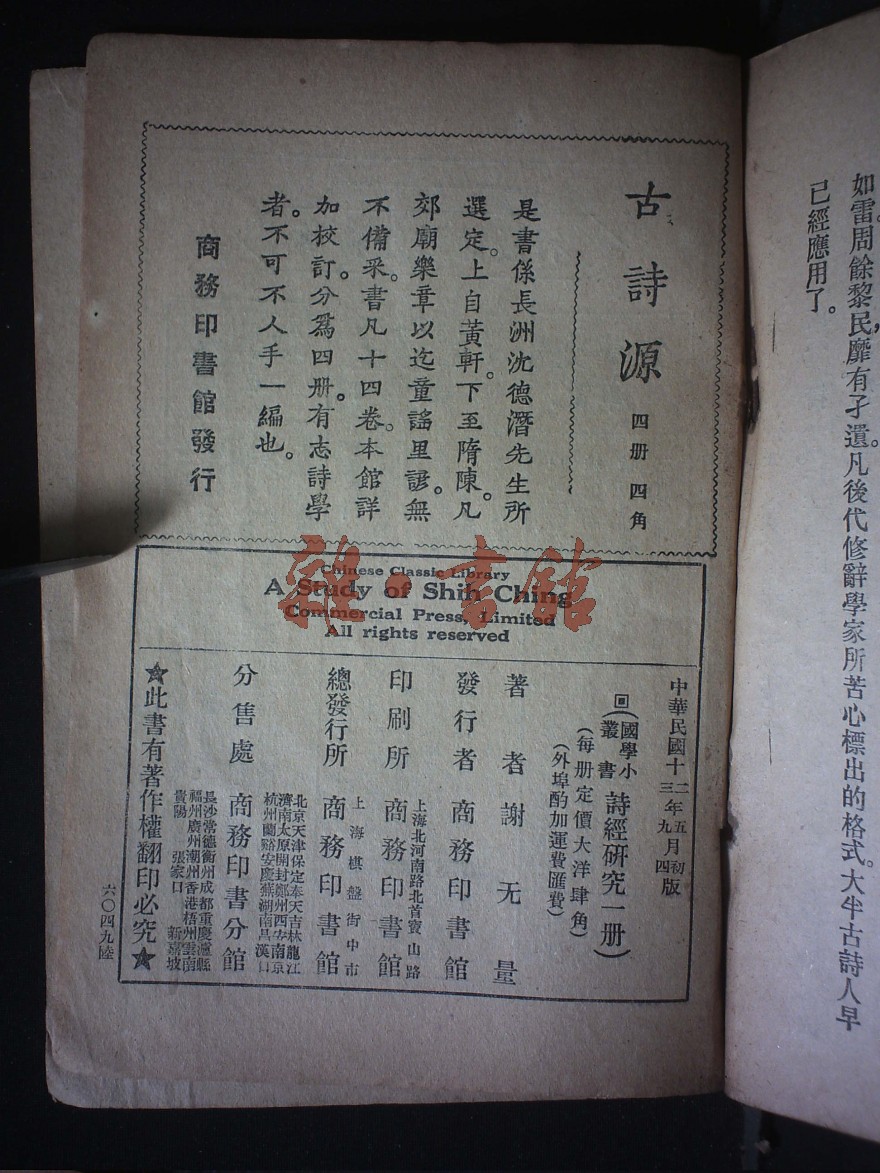 如雷。周餘黎民，靡有孑遺。凡後代修辭學家所苦心標出的格式。大半古詩人早
已經應用了。
古詩源
四册 四角
是書係長洲沈德潛先生所
選定。上自黃軒。下至隋陳。凡
郊廟樂章以迄童謠里諺。無
不備采。書凡十四卷。本館詳
加校訂。分爲四册。有志詩學
者。不可不人手一編也。
商務印書館發行
Chinese Classic Library
A Study of Shih Ching
Commercial Press, Limited
All rights reserved
中華民國十二年五月初版
三年九月四版
回(國學小叢書 詩經研究一册)
(每册定價大洋肆角)
(外埠酌加運費匯費)
著者 謝无量
發行者 商務印書館
印刷所 上海北河南路北首寶山路
商務印書館
總發行所 上海棋盤街中市
商務印書館
分售處 商務印書分館
北京天津保定奉天吉林龍江
濟南太原開封鄭州西安南京
杭州蘭谿安慶蕪湖南昌漢口
長沙常德衡州成都重慶瀘縣
福州廣州潮州香港梧州雲南
貴陽 張家口 新嘉坡
★此書有著作權翻印必究★
六〇四九陸
雜·書館